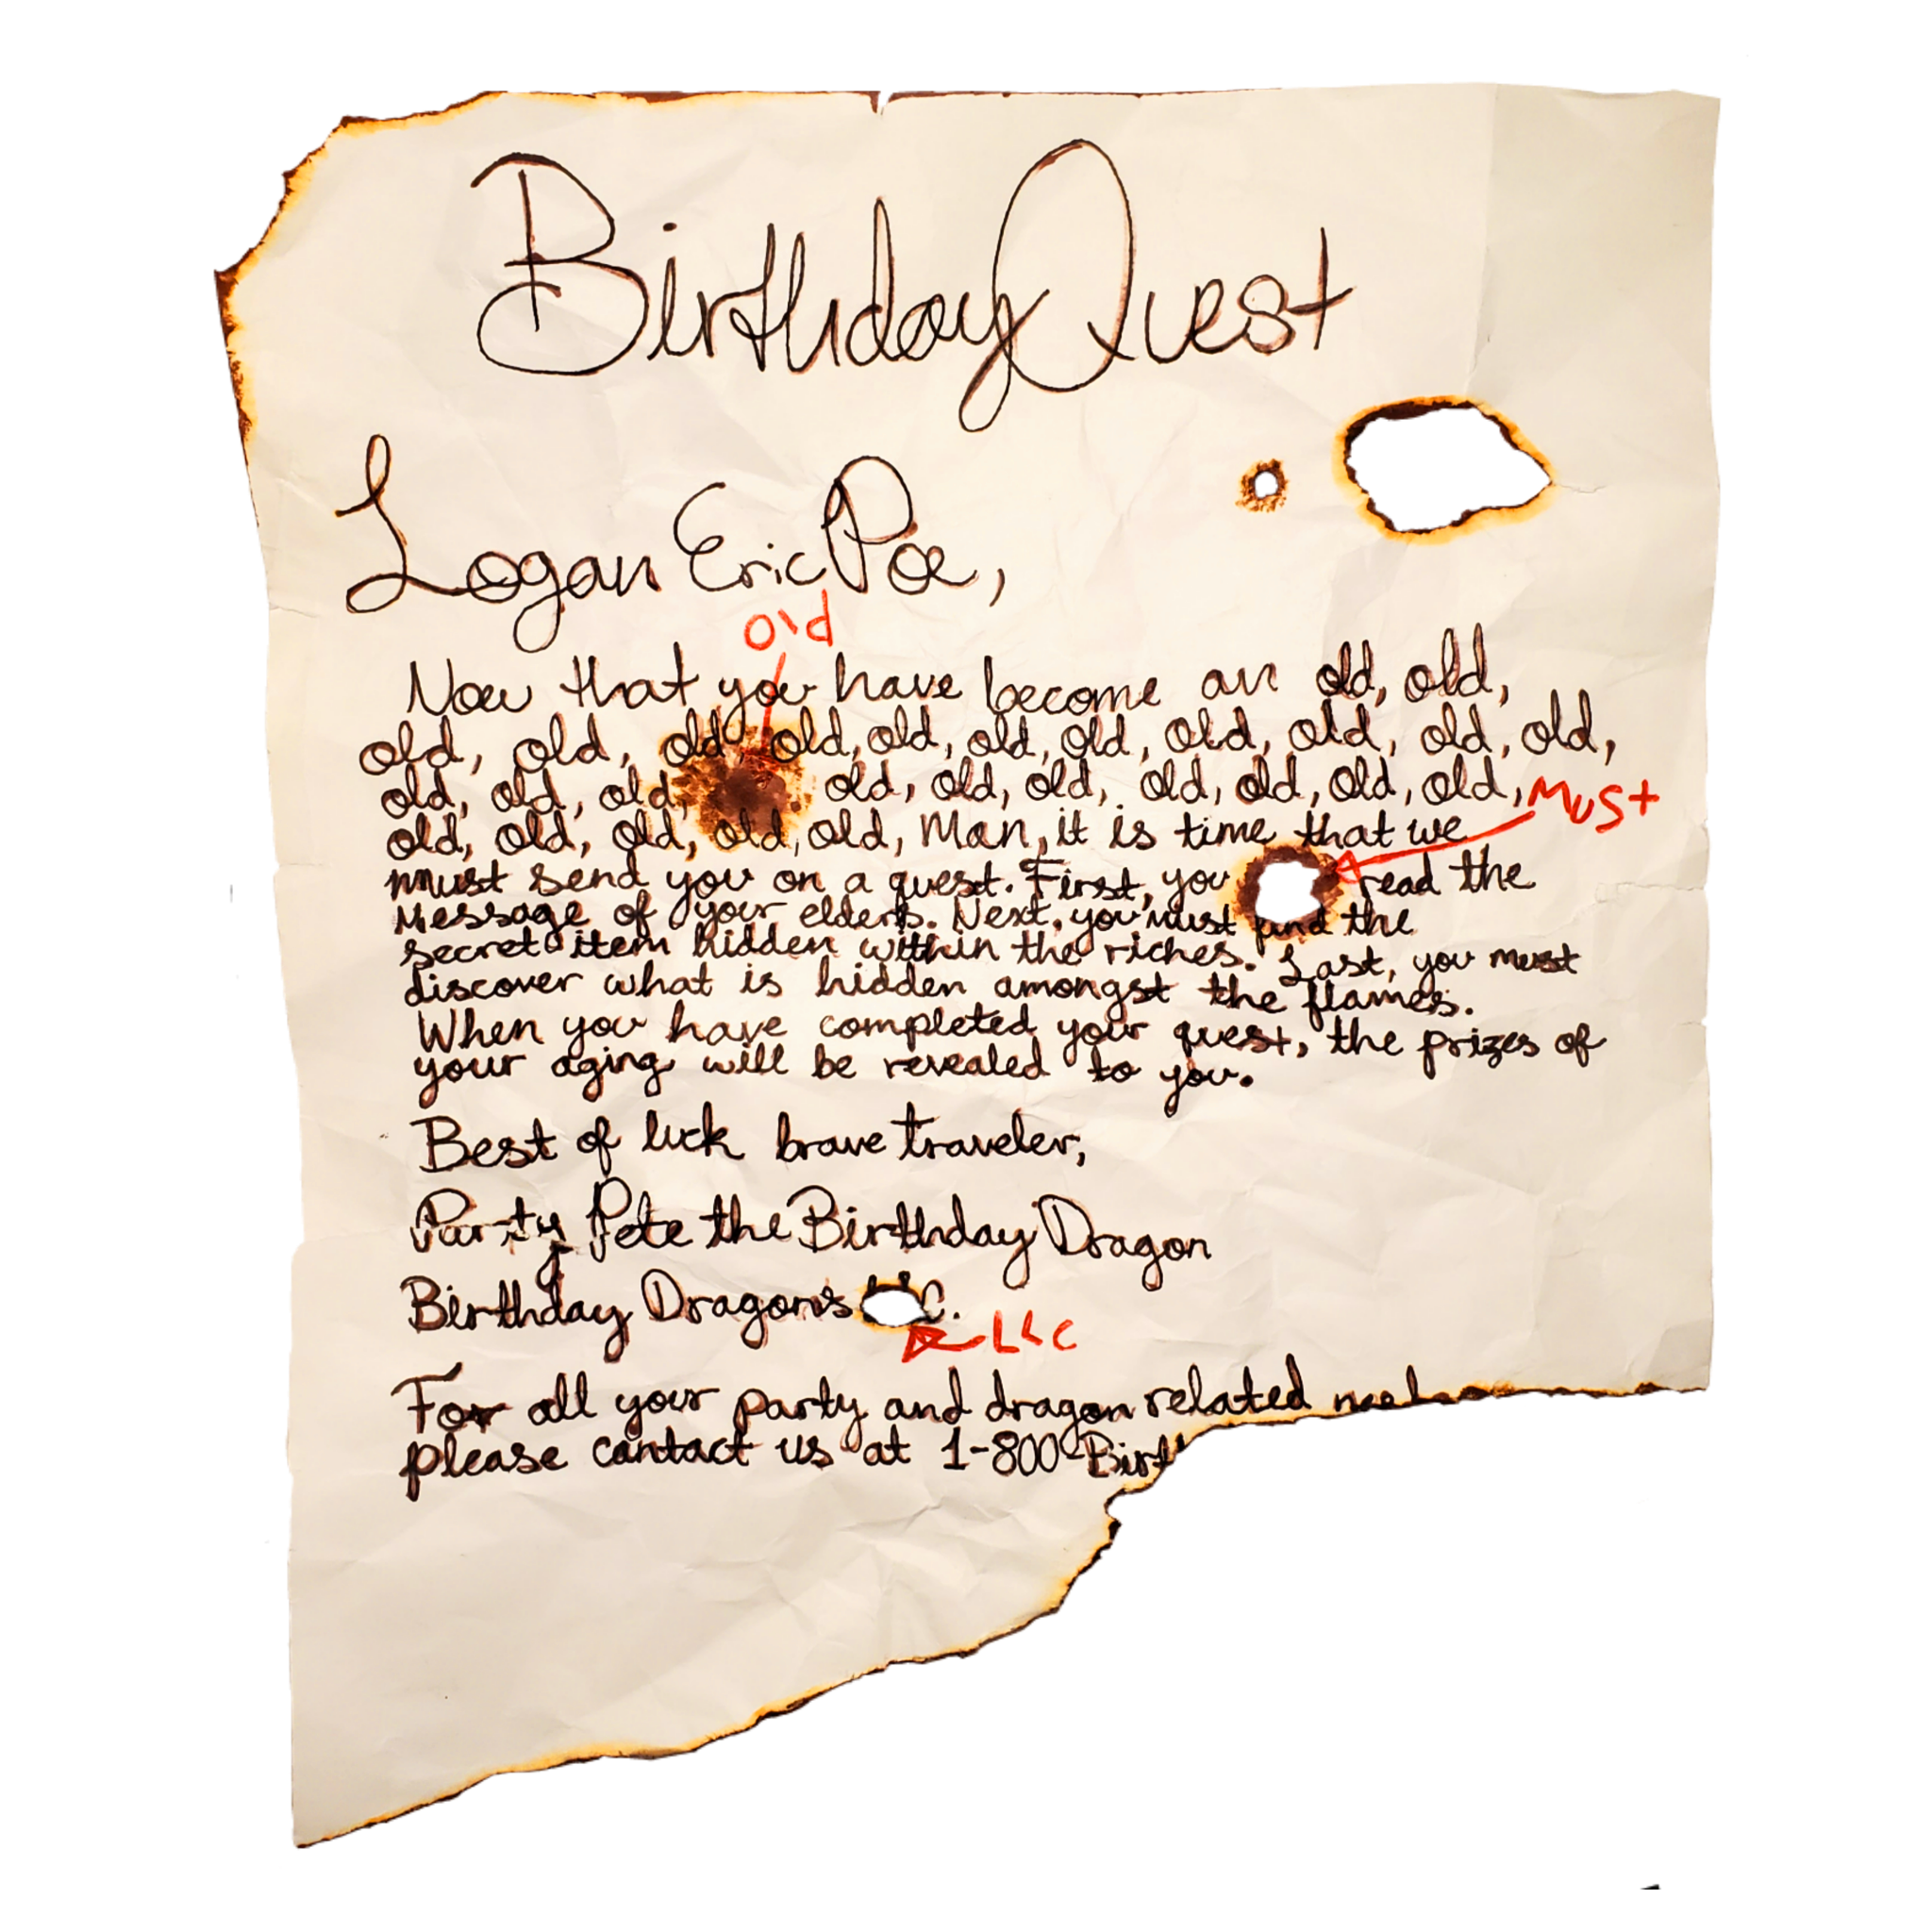 Birthday Quest
Logan Eric Poe,
old
Now that you have become an old, old,
old, old, old, old, old, old, old, old, old, old, old,
old, old, old, old, old, old, old, old, old, old, Must
old, old, old, old, old, Man, it is time that we
must send you on a quest. First, you read the
Message of your elders. Next, you must find the
secret item hidden within the riches. Last, you must
discover what is hidden amongst the flames.
When you have completed your quest, the prizes of
your aging will be revealed to you.
Best of luck brave traveler,
Party Pete the Birthday Dragon
Birthday Dragons C.
LLC
For all your party and dragon related
please contact us at 1-800-Birt